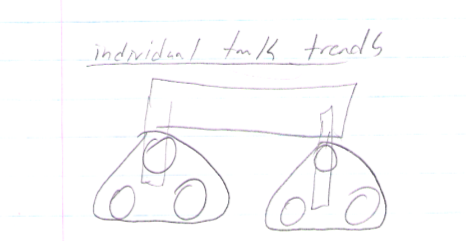 individual tank treads